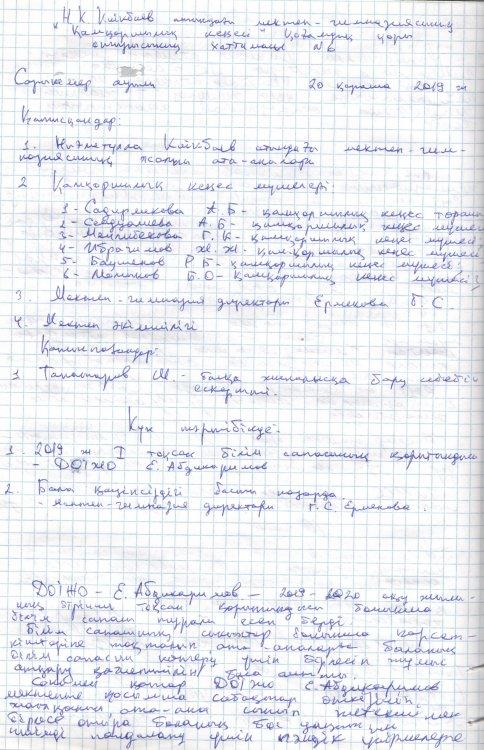 Н.К. Кейкбаев атындағы мектеп-гимназиясының
Қамқоршылық кеңесі Қоғамдық қоры
отырысының хаттамасы №6
Сарыкемер ауылы 20 қараша 2019 ж
Қатысқандар:
1. атындағы мектеп-гим-
назиясының жалпы ата-аналары
2 Қамқоршылық кеңес мүшелері:
1- А.Б- қамқоршылық кеңес төрағасы
2- А.Б- қамқоршылық кеңес мүшесі
3- Г.К- қамқоршылық кеңес мүшесі
4- Ибрагимов Ж.Ж- қамқоршылық кеңес мүшесі
5- Р.Б- қамқоршылық кеңес мүшесі;
6- Б.О- қамқоршылық кеңес мүшесі;
3. Мектеп-гимназия директоры Ермекова Г.С.
4. Мектеп әкімшілігі
Қатыспағандар:
1 М. - басқа жиналысқа бару себебін
ескертті.
Күн тәртібінде:
1. 2019 ж I тоқсан білім сапасының қорытындысы
- ДОІЖО Е. Абдикаримов
2. Бала қауіпсіздігі басты назарда.
- мектеп-гимназия директоры Г.С. Ермекова.
ДОІЖО - Е. Абдикаримов - 2019-2020 оқу жылы-
ның бірінші тоқсан қорытындысы бойынша
білім сапасы туралы есеп берді.
Білім сапасының бойынша көрсет-
кіштеріне тоқталып ата-аналарға баланың
білім сапасын көтеру үшін бірлесіп жұмыс
атқару қажеттігін баса айтты.
Сонымен қатар ДОІЖО Е. Абдикаримов
мектепте қосымша сабақтар өткізіліп,
ата-ана сынып жетекші мек
бірлесе отыра баланың бос уақытын
тиімді пайдалану үшін үйірмелерге